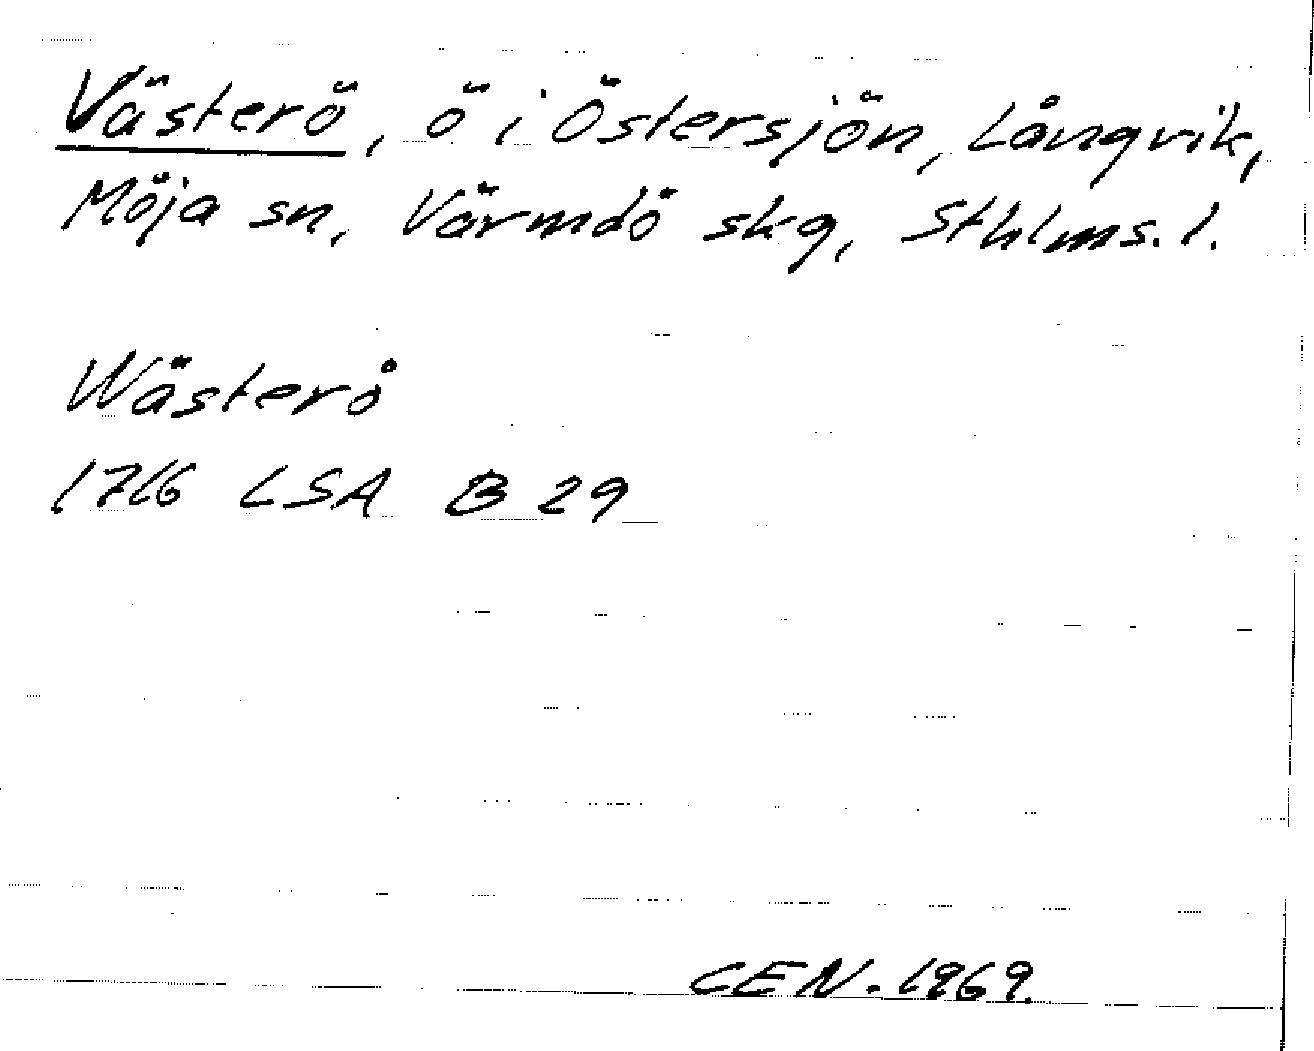 Västerö, ö i Östersjön, Långvik,
Möja sn, Värmdö skg, Sthlms. l.
Wästerö
1716 LSA B 29
CEN. 1969.